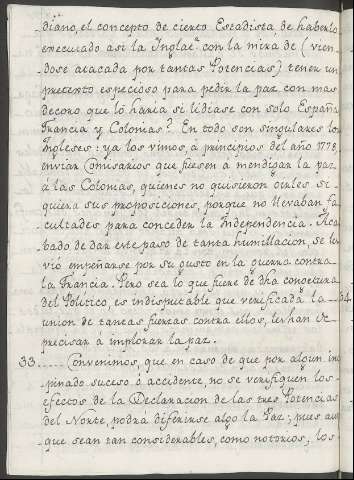 diano, el concepto de cierto Estadista, de haberlo
executado asi la Ynglaª. con la mira de (vien-
dose atacada por tantas Potencias) tener un
pretexto especioso para pedir la paz con mas
decoro que lo haria si lidiase con solo España
Francia y Colonias? En todo son singulares los
Ingleses: ya los vimos, à principios del año 1778,
enviar Comisarios que fuesen à mendigar la paz
à las Colonias, quienes no quisieron oirles si
quiera sus proposiciones, porque no llevaban fa-
cultades para conceder la Independencia. Aca
bado de dar este paso de tanta humillacion, se les
vió empeñarse por su gusto en la guerra contra
la Francia. Pero sea lo que fuere de dha congetura
del Politico, es indisputable que verificada la
union de tantas fuerzas contra ellos, les han de
precisar à implorar la paz.
33. Convenimos, que en caso de que por algun ino
pinado suceso ò accidente, no se verifiquen los
efectos de la Declaracion de las tres Potencias
del Norte, podrá diferirse algo la Paz; pues aun
que sean tan considerables, como notorios, los